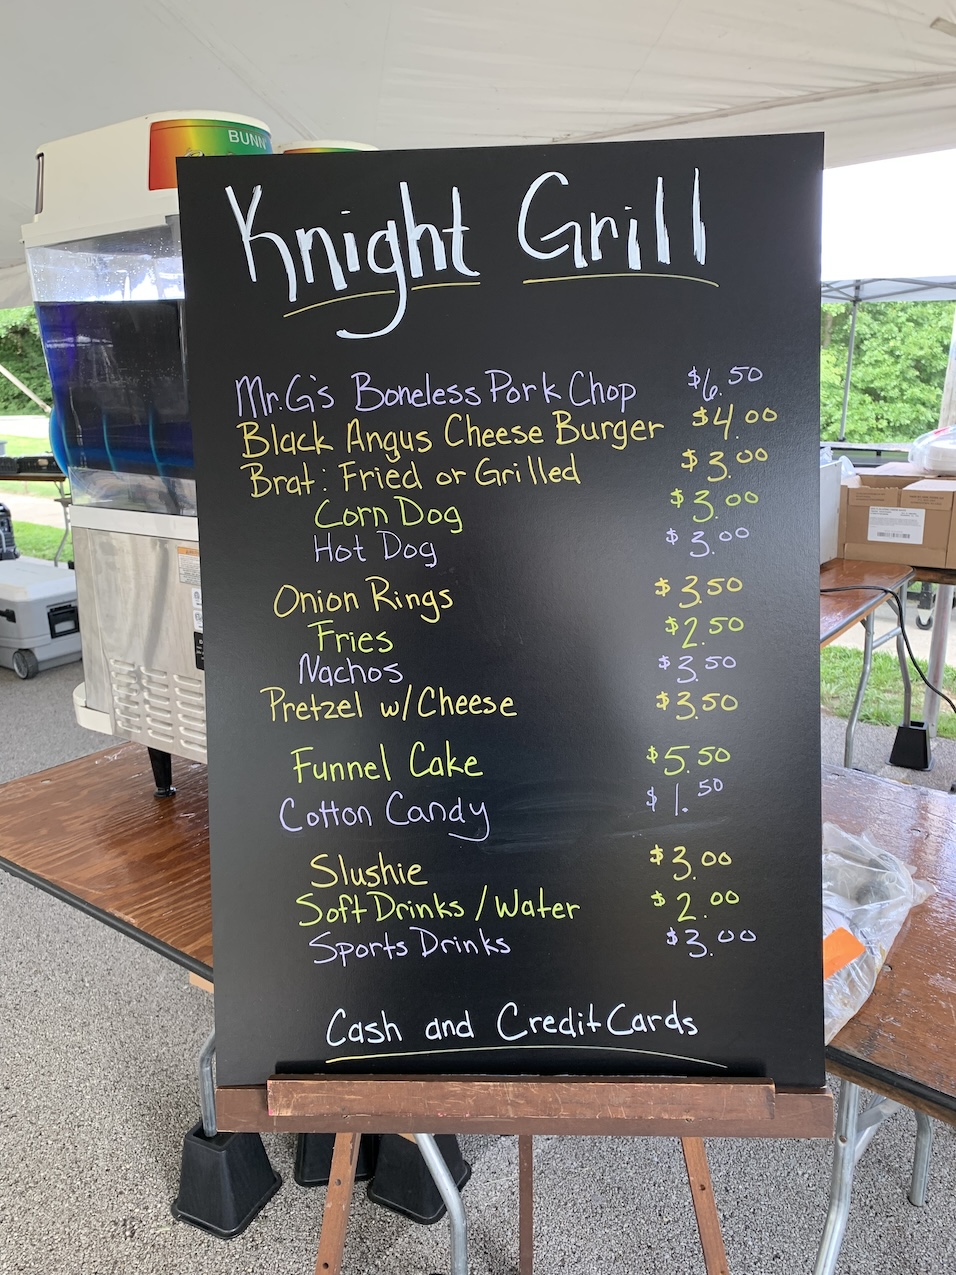 BUNN
Knight Grill
Mr.G's Boneless Pork Chop $6.50
Black Angus Cheese Burger $4.00
Brat: Fried or Grilled $3.00
Corn Dog $3.00
Hot Dog $3.00
Onion Rings $3.50
Fries $2.50
Nachos $3.50
Pretzel w/Cheese $3.50
Funnel Cake $5.50
Cotton Candy $1.50
Slushie $3.00
Soft Drinks / Water $2.00
Sports Drinks $3.00
Cash and Credit Cards